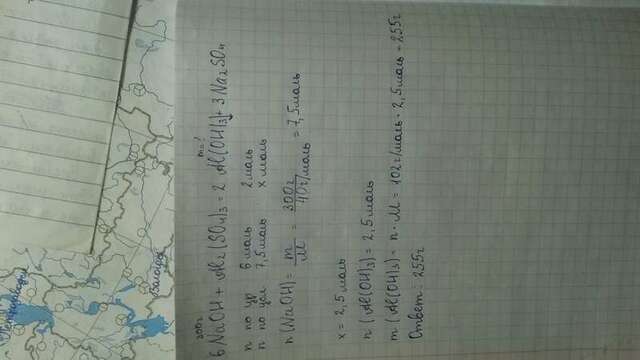 Петрозаводск
Вологда
300г
m=?
6 NaOH + Al₂(SO₄)₃ = 2 Al(OH)₃↓ + 3 Na₂SO₄
n по ур 6 моль 2 моль
n по усл 7,5 моль x моль
n (NaOH) = m/M = 300г/40г/моль = 7,5 моль
x = 2,5 моль
n (Al(OH)₃) = 2,5 моль
m (Al(OH)₃) = n · M = 102г/моль · 2,5 моль = 255г
Ответ: 255г